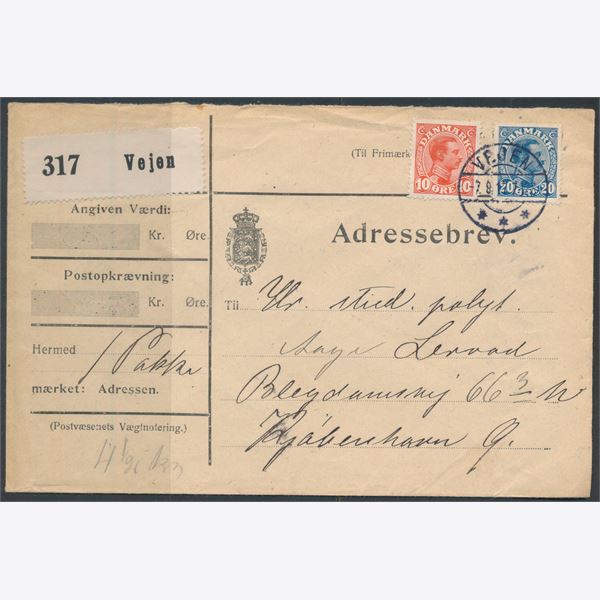 317 Vejen
(Til Frimærk
DANMARK
10 ØRE 10
DANMARK
20 ØRE 20
VEJEN
Angiven Værdi:
Kr. Øre.
Postopkrævning:
Kr. Øre.
Hermed 1 Pakke
mærket: Adressen.
(Postvæsenets Vægtnotering.)
Adressebrev.
Til Hr. stud. polyt.
Aage Lervad
Blegdamsvej 66 3
Kjøbenhavn